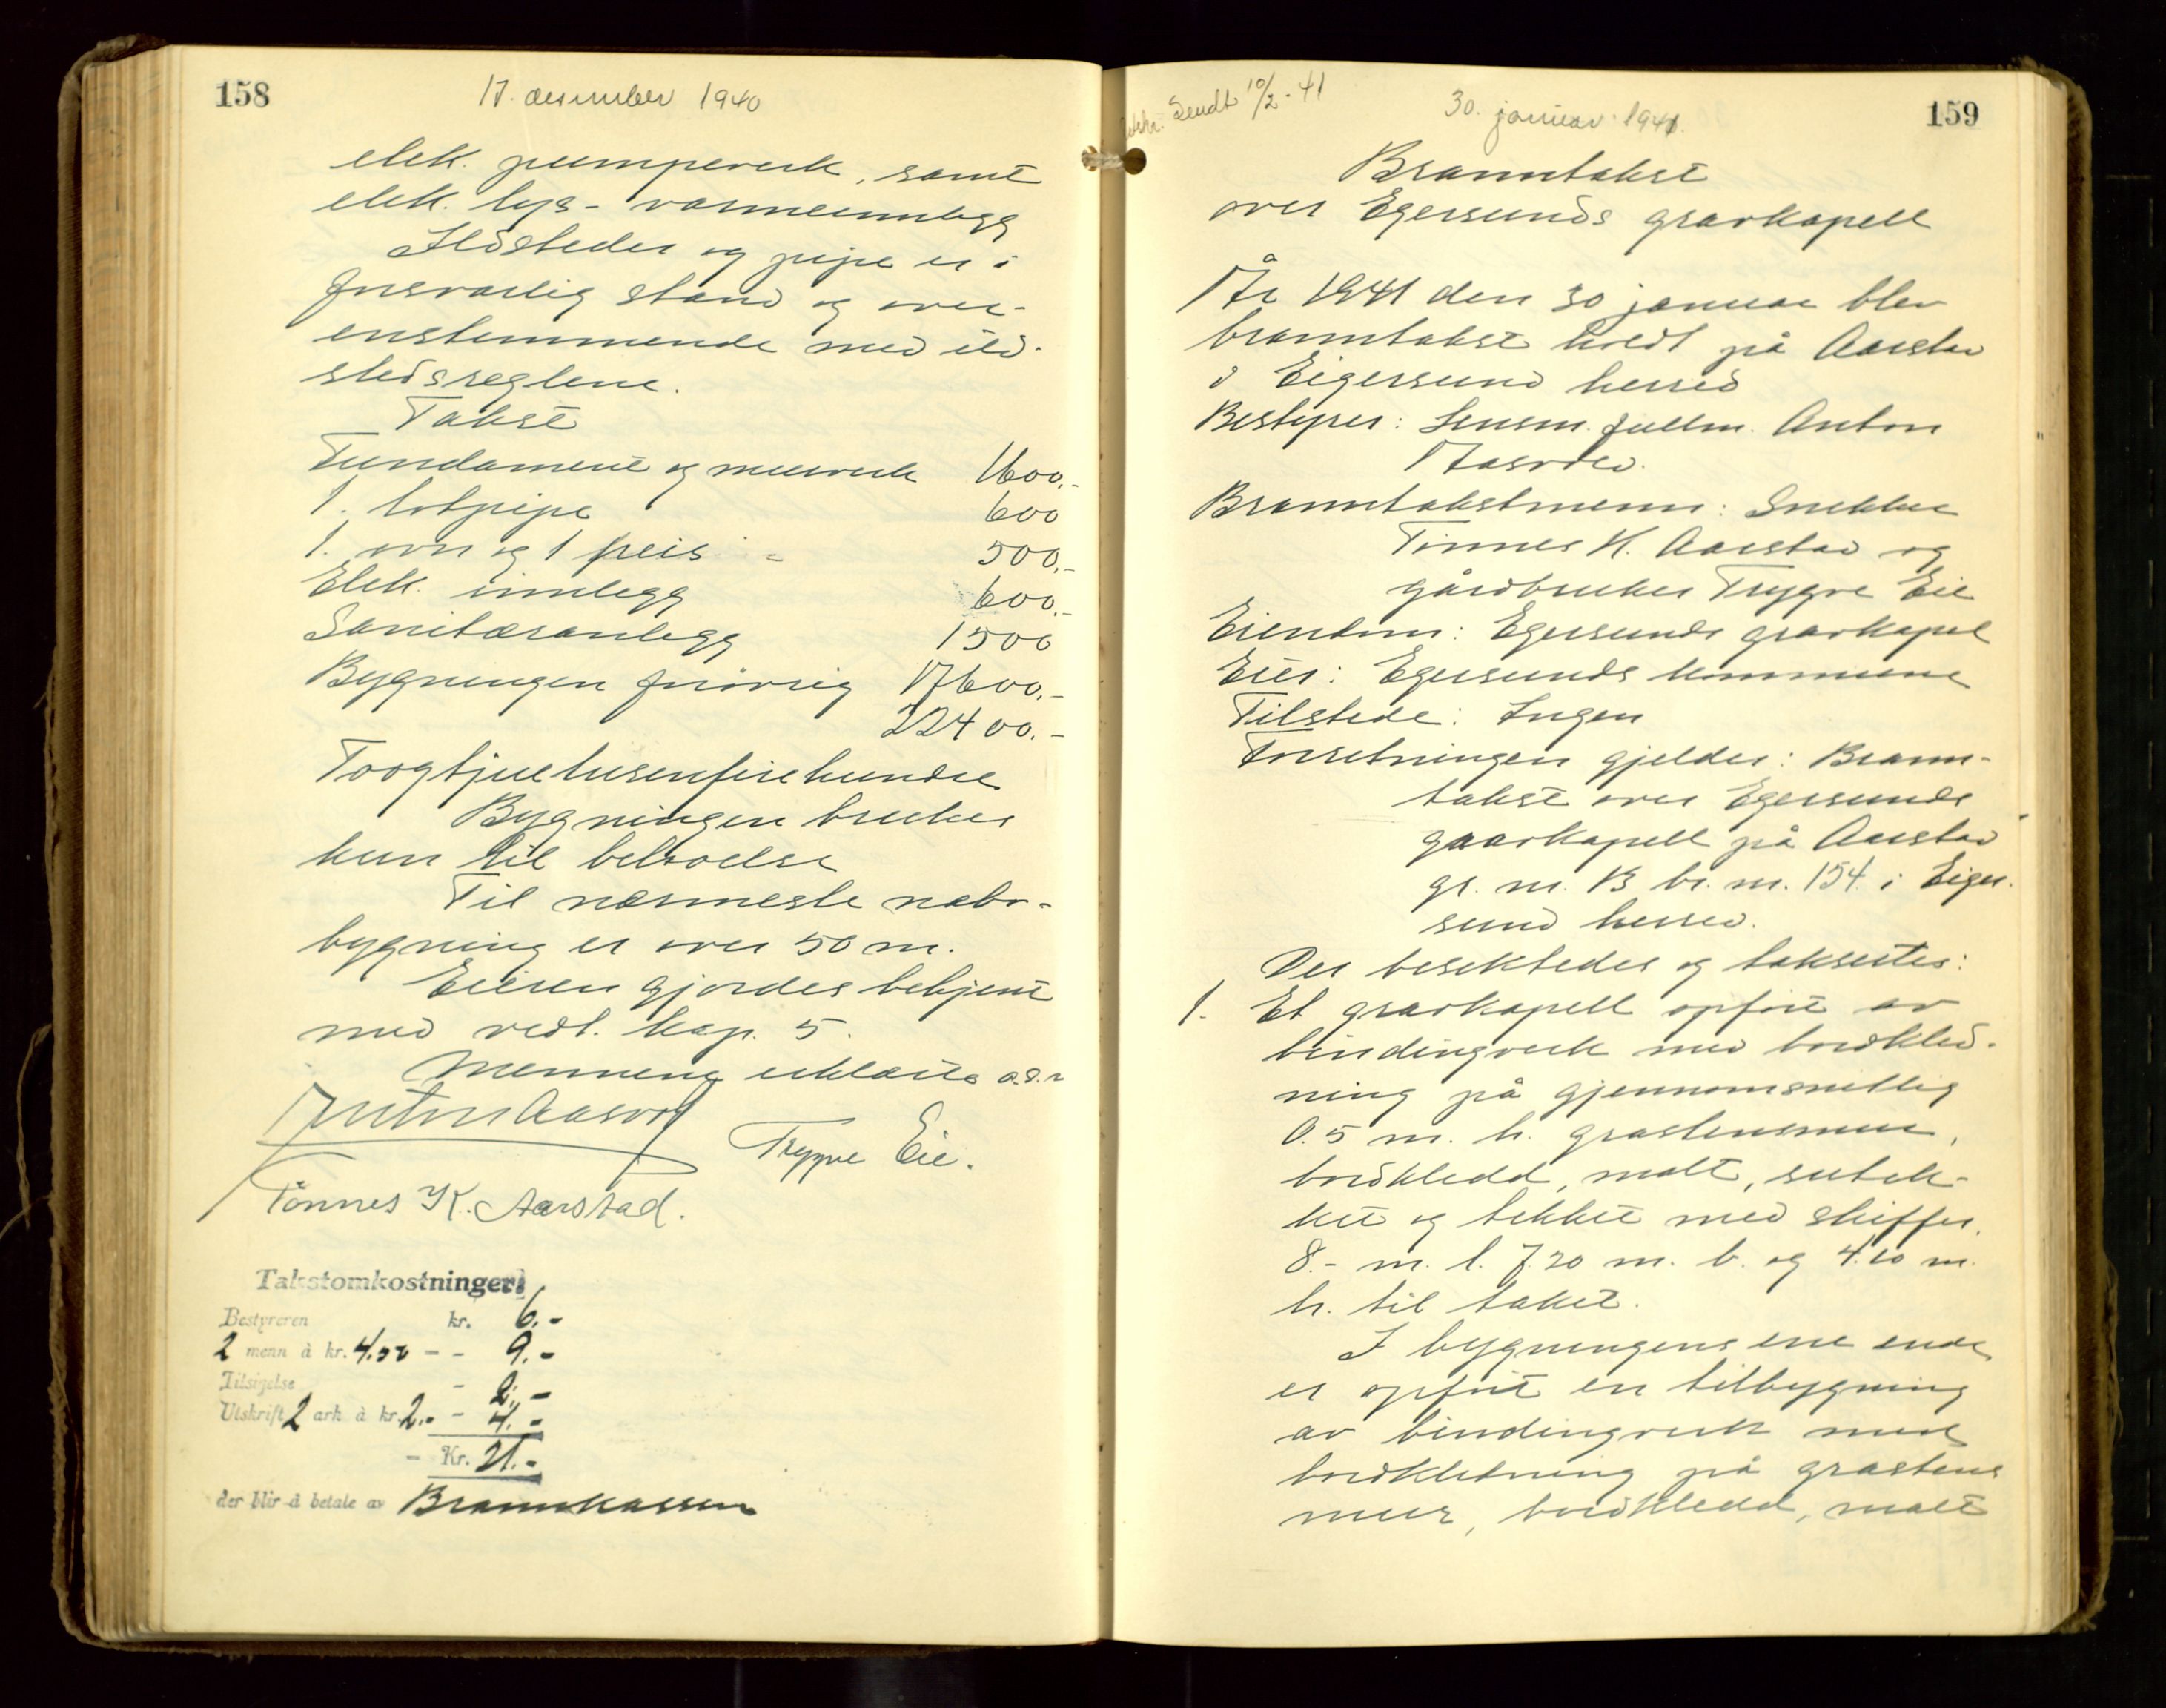 158
17. desember 1940
elek. pumpeverk, samt
elek. lys- varmeinnlegg
Ildsteder og pipe er i
forsvarlig stand og over-
enstemmende med ild-
stedsreglene.
Takst
Fundament og murverk 1600.-
1. lotpipe 600
1. ovn og 1 peis - 500.-
Elek. innlegg 600.-
Sanitæranlegg 1500
Bygningen forøvrig 17600.-
22400.-
Toogtjuetusenfirehundre
Bygningen brukes
kun til beboelse
Til nærmeste nabo-
bygning er over 50 m.
Eieren gjordes bekjent
med vedt. kap. 5.
Menneng erklærte o.s.v
Anton Aasvod
Trygve Eie.
Tönnes K. Aarstad.
Takstomkostninger:
Bestyreren kr. 6.-
2 menn à kr. 4.50 - - 9.-
Tilsigelse - 2.-
Utskrift 2 ark à kr. 2.- - 4.-
- Kr. 21.-
der blir å betale av Brannkassen
159
Utskr. Sendt 10/2-41
30. januar 1941.
Branntakst
over Egersunds gravkapell
År 1941 den 30 januar blev
branntakst holdt på Aarstad
i Eigersund herred
Bestyrer: Lensm. fullm. Anton
Aasvod.
Branntakstmenn: Snekker
Tönnes K. Aarstad og
gårdbruker Trygve Eie
Eiendom: Egersunds gravkapel
Eier: Egersunds kommune
Tilstede: Ingen
Forretningen gjelder: Brann-
takst over Egersunds
gravkapell på Aarstad
gr. nr. 13 br. nr. 154 i Eiger-
sund herred.
Der besiktedes og taksertes:
1. Et gravkapell opført av
bindingverk med bordkled-
ning på gjennomsnittlig
0.5 m. h. gråstensmur,
bordkledd, malt, sutak-
ket og tekket med skiffer.
8.- m. l. 7.20 m. b. og 4.20 m.
h. til taket.
I bygningens ene ende
er opført en tilbygning
av bindingverk med
bordkledning på gråstens
mur, bordkledd, malt